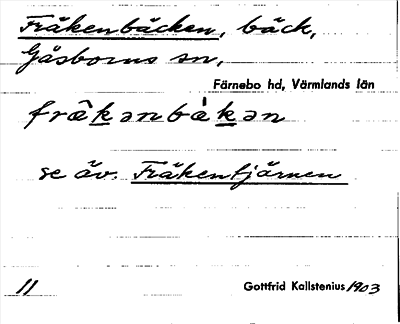 Fräkenbäcken, bäck,
Gåsborns sn,
Färnebo hd, Värmlands län
fræ̂kənbàkən
se äv. Fräkentjärnen
11
Gottfrid Kallstenius 1903